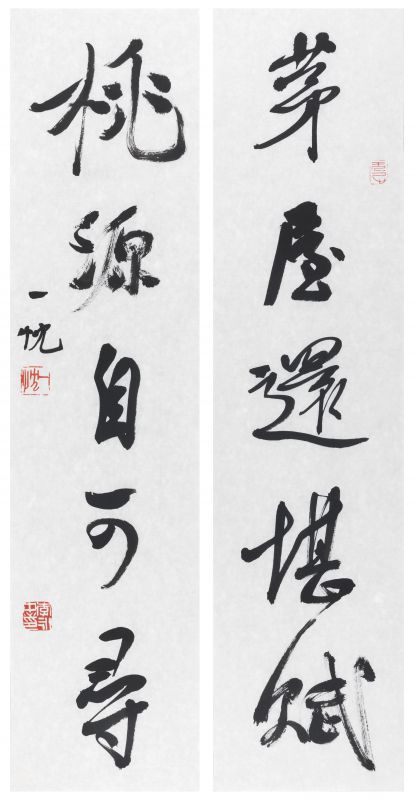 茅屋還堪賦
桃源自可尋
一忱